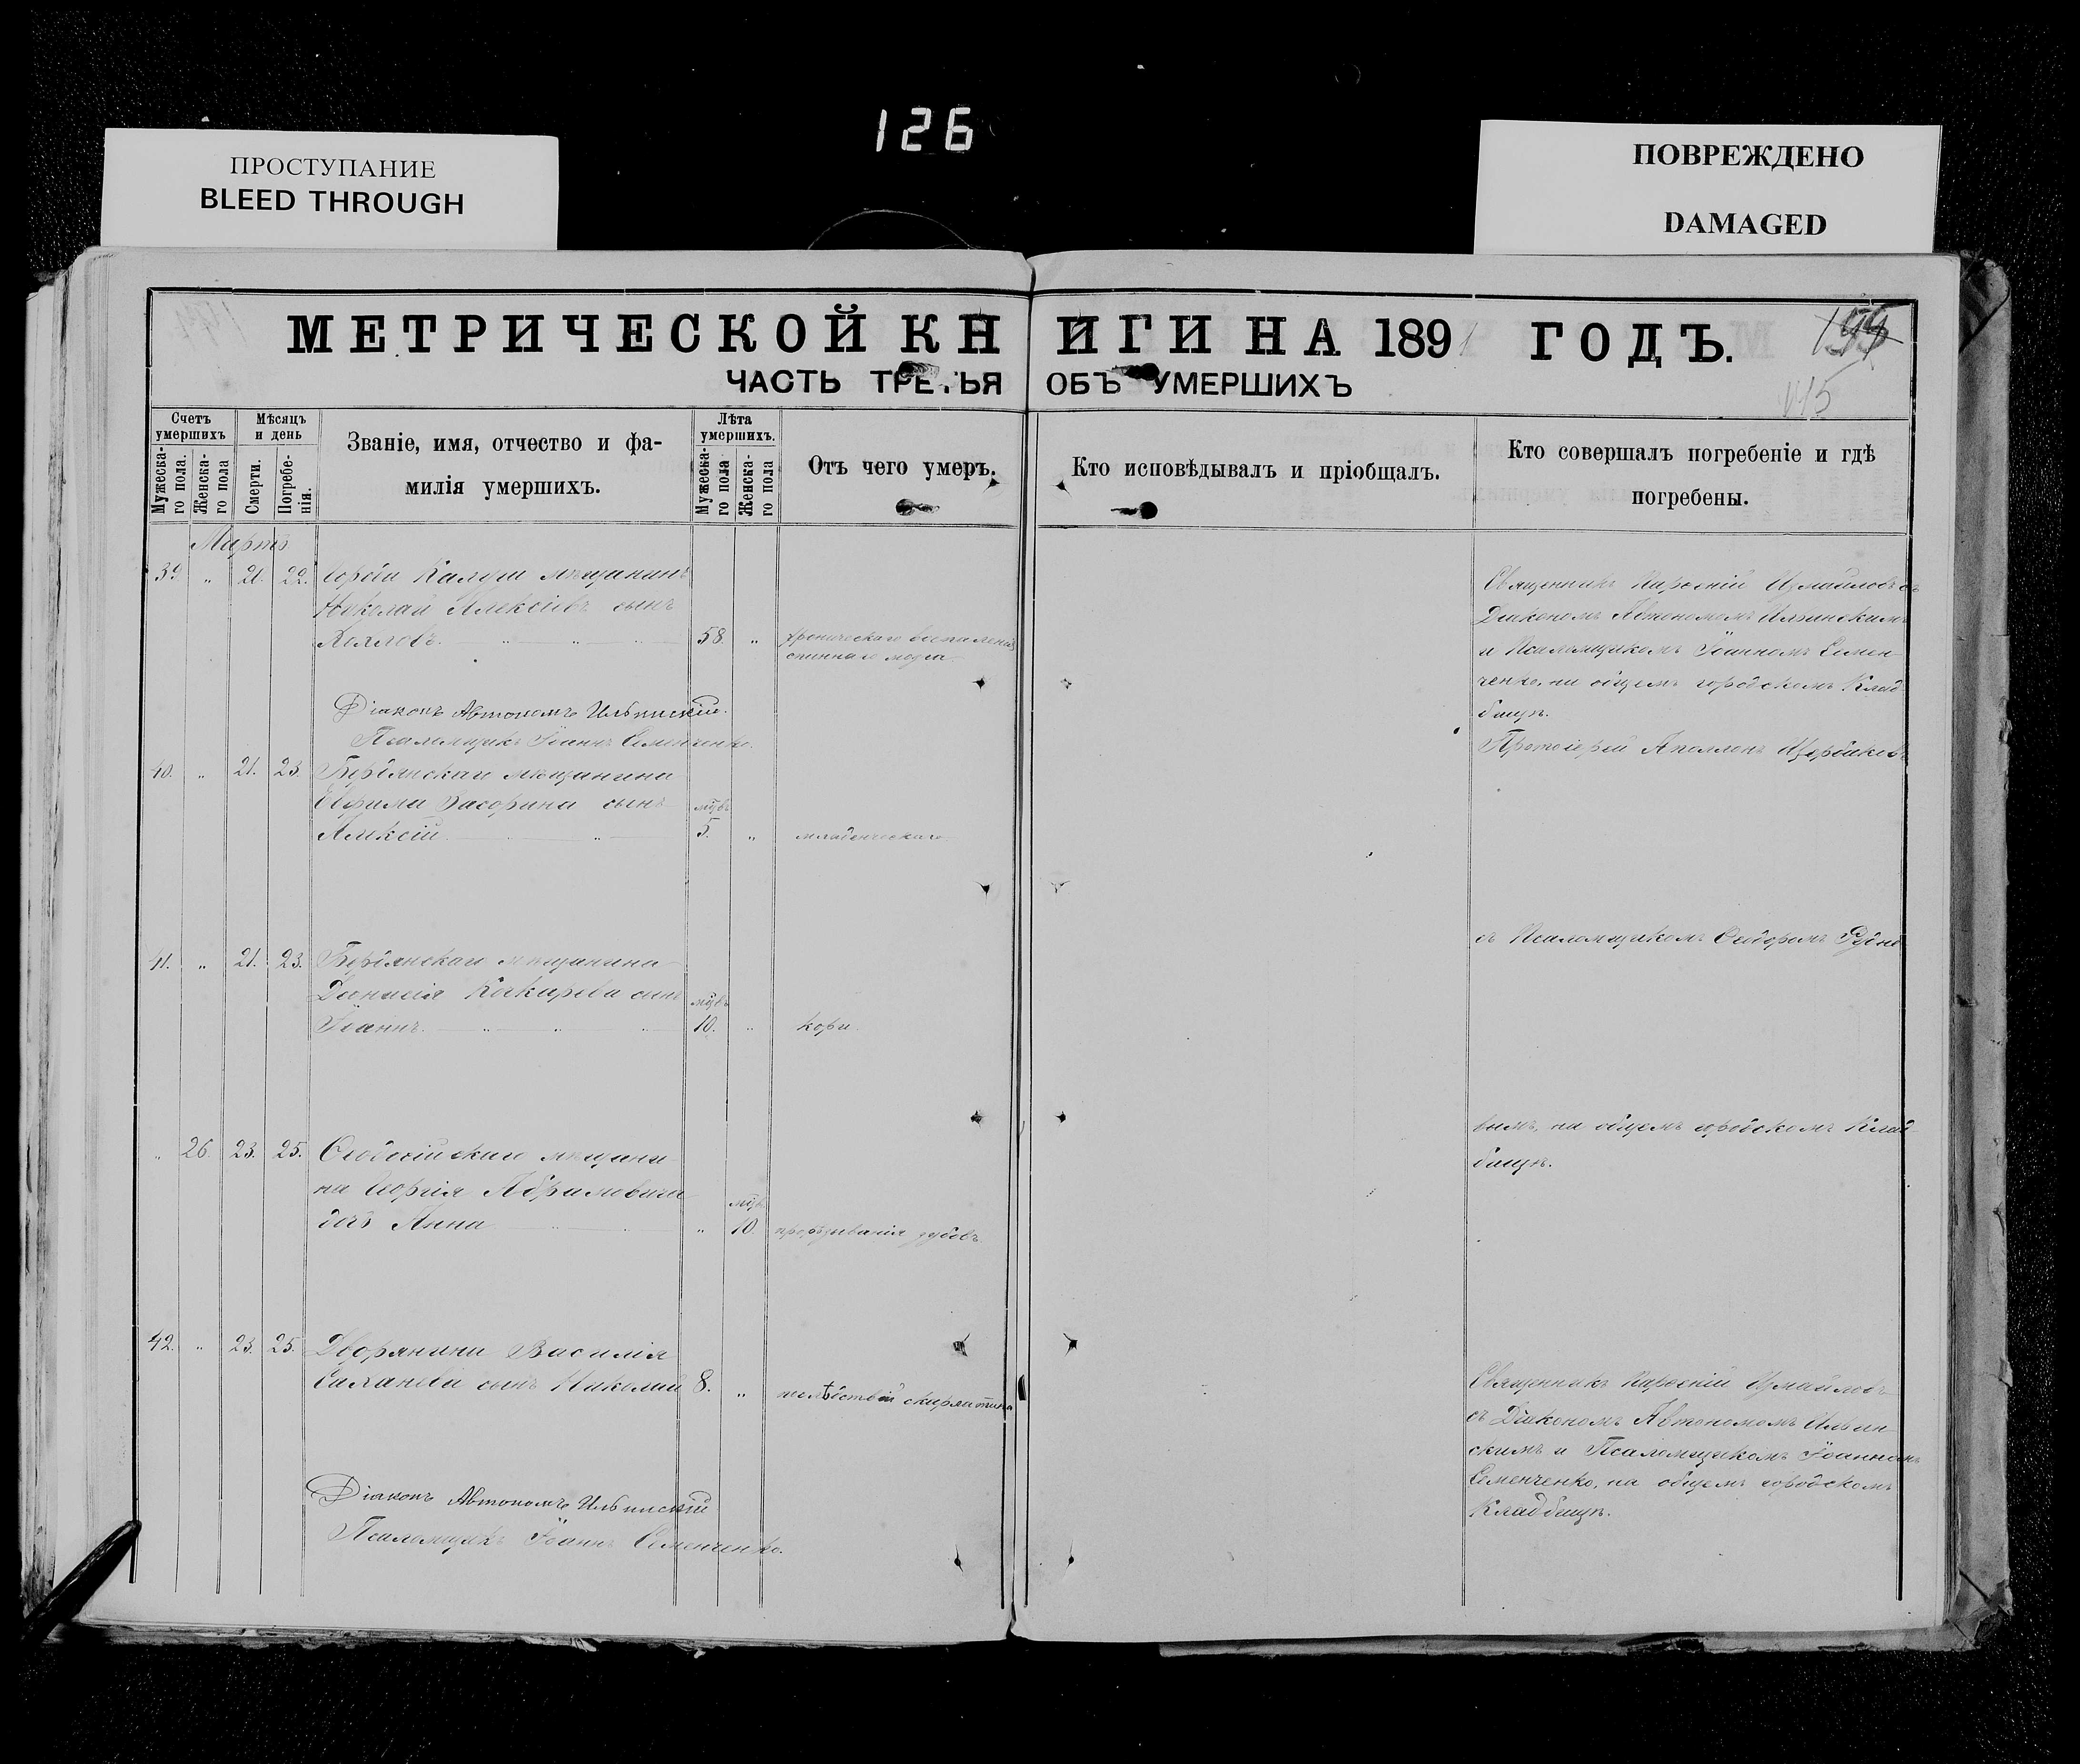 126
ПРОСТУПАНИЕ
BLEED THROUGH
ПОВРЕЖДЕНО
DAMAGED
МЕТРИЧЕСКОЙ КНИГИ НА 1891 ГОДЪ.
145
ЧАСТЬ ТРЕТЬЯ ОБЪ УМЕРШИХЪ
Счетъ умершихъ
Мужеска-го пола.
Женска-го пола
Мѣсяцъ и день
Смерти.
Погребе-нія.
Званіе, имя, отчество и фа-
милія умершихъ.
Лѣта умершихъ.
Мужеска-го пола
Женска-го пола
Отъ чего умеръ.
Кто исповѣдывалъ и пріобщалъ.
Кто совершалъ погребеніе и гдѣ
погребены.
Мартъ
39. " 21. 22. города Калуги мѣщанинъ
Николай Алексіевъ сынъ
58 " хроническаго воспаленія
спиннаго мозга
Священникъ Измайловъ съ
Діакономъ Автономомъ Ильинскимъ
и Псаломщикомъ Іоанномъ Семен-
ченко, на общемъ городскомъ Клад-
бищѣ.
Діаконъ Автономъ Ильинскій.
Псаломщикъ Іоаннъ Семенченко.
Протоіерей Аполлонъ
40. " 21. 23. Бердянскаго мѣщанина
сынъ мѣс.
Алексій 5. " младенческаго
41. " 21. 23. Бердянскаго мѣщанина
Діонисія сынъ мѣс.
Іоаннъ. 10. " кори
съ Псаломщикомъ Ѳеодоромъ Рудне-
" 26. 23. 25. Ѳеодосійскаго мѣщани-
на Георгія Абрамовича мѣс.
дочь Анна " 10. прорѣзыванія зубовъ
вымъ, на общемъ городскомъ Клад-
бищѣ.
42. " 23. 25. Дворянина Василія
сынъ Николай 8. " послѣдствій скарлатины
Священникъ Измайловъ
съ Діакономъ Автономомъ Ильин-
скимъ и Псаломщикомъ Іоанномъ
Семенченко, на общемъ городскомъ
Кладбищѣ.
Діаконъ Автономъ Ильинскій
Псаломщикъ Іоаннъ Семенченко.